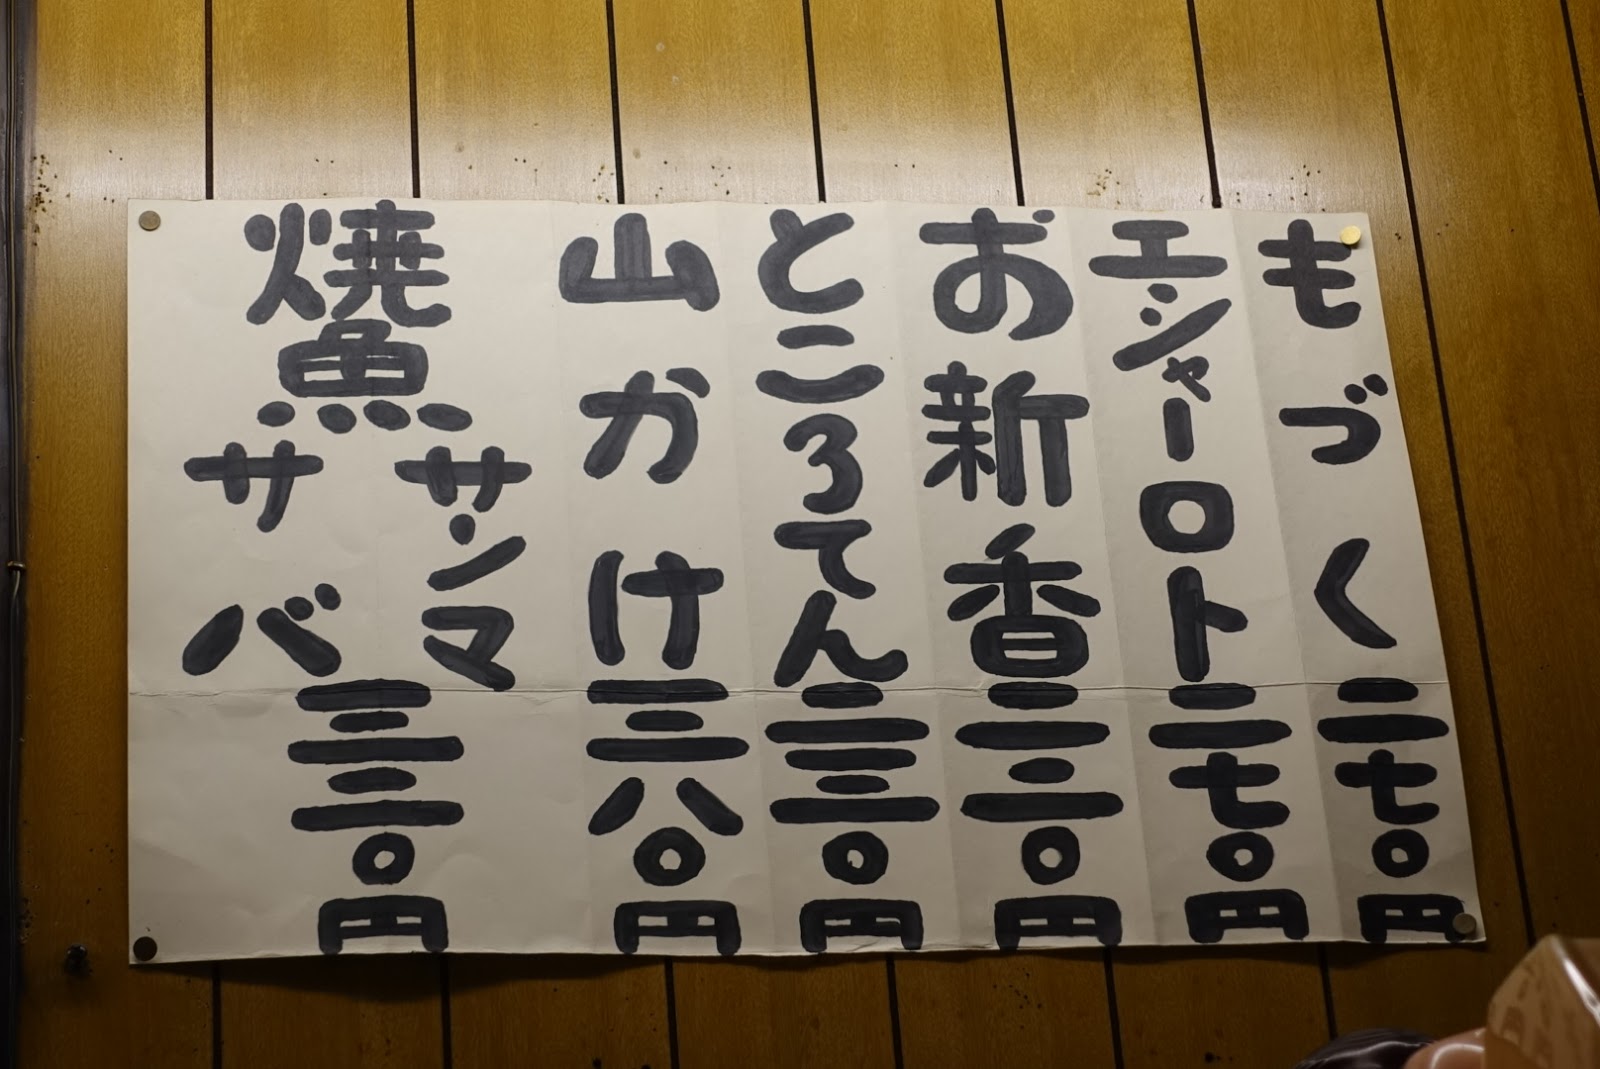 もづく二七〇円
エシャーロト二七〇円
お新香二二〇円
ところてん二三〇円
山かけ三八〇円
焼魚
サンマ
サバ
三二〇円